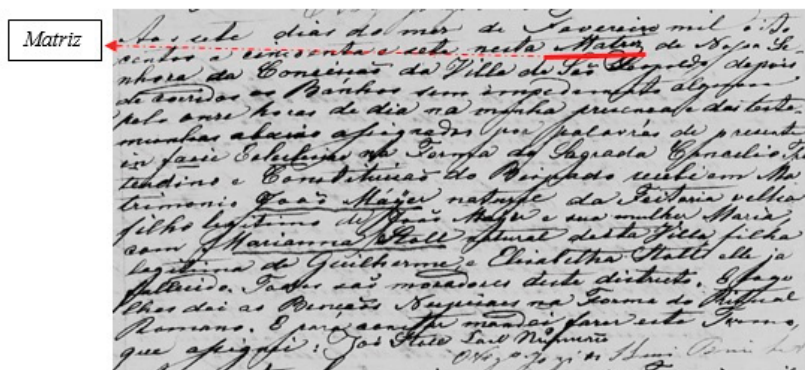 Matriz
Aos sete dias do mez de Fevereiro mil oito
centos e cincoenta e sete nesta Matriz de Nossa Se
nhora da Conceição da Villa de São Leopoldo, depois
de corridos os Banhos sem impedimento algum
pelo onze horas de dia na minha presença e das teste
munhas abaixo assignados por palavras de presente
in facie Ecclesiae na Forma do Sagrado Concilio Tri
dentino e Constituição do Bispado recebi em Ma
trimonio João Mayer natural da Feitoria velha
filho legitimo de João Mayer e sua mulher Maria
com Marianna Stoll natural desta Villa filha
legitima de Guilherme e Elisabetha Stoll elle ja
fallecido. Todos são moradores deste districto. E logo
lhes dei as Bençãos Nupciaes na Forma do Ritual
Romano. E para constar mandei fazer este Termo,
que assignei: João Stoll